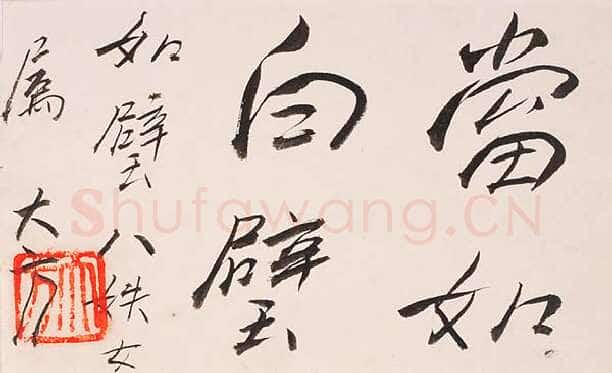 當如
白璧
如璧八女
屬 大方
Shufawang.CN